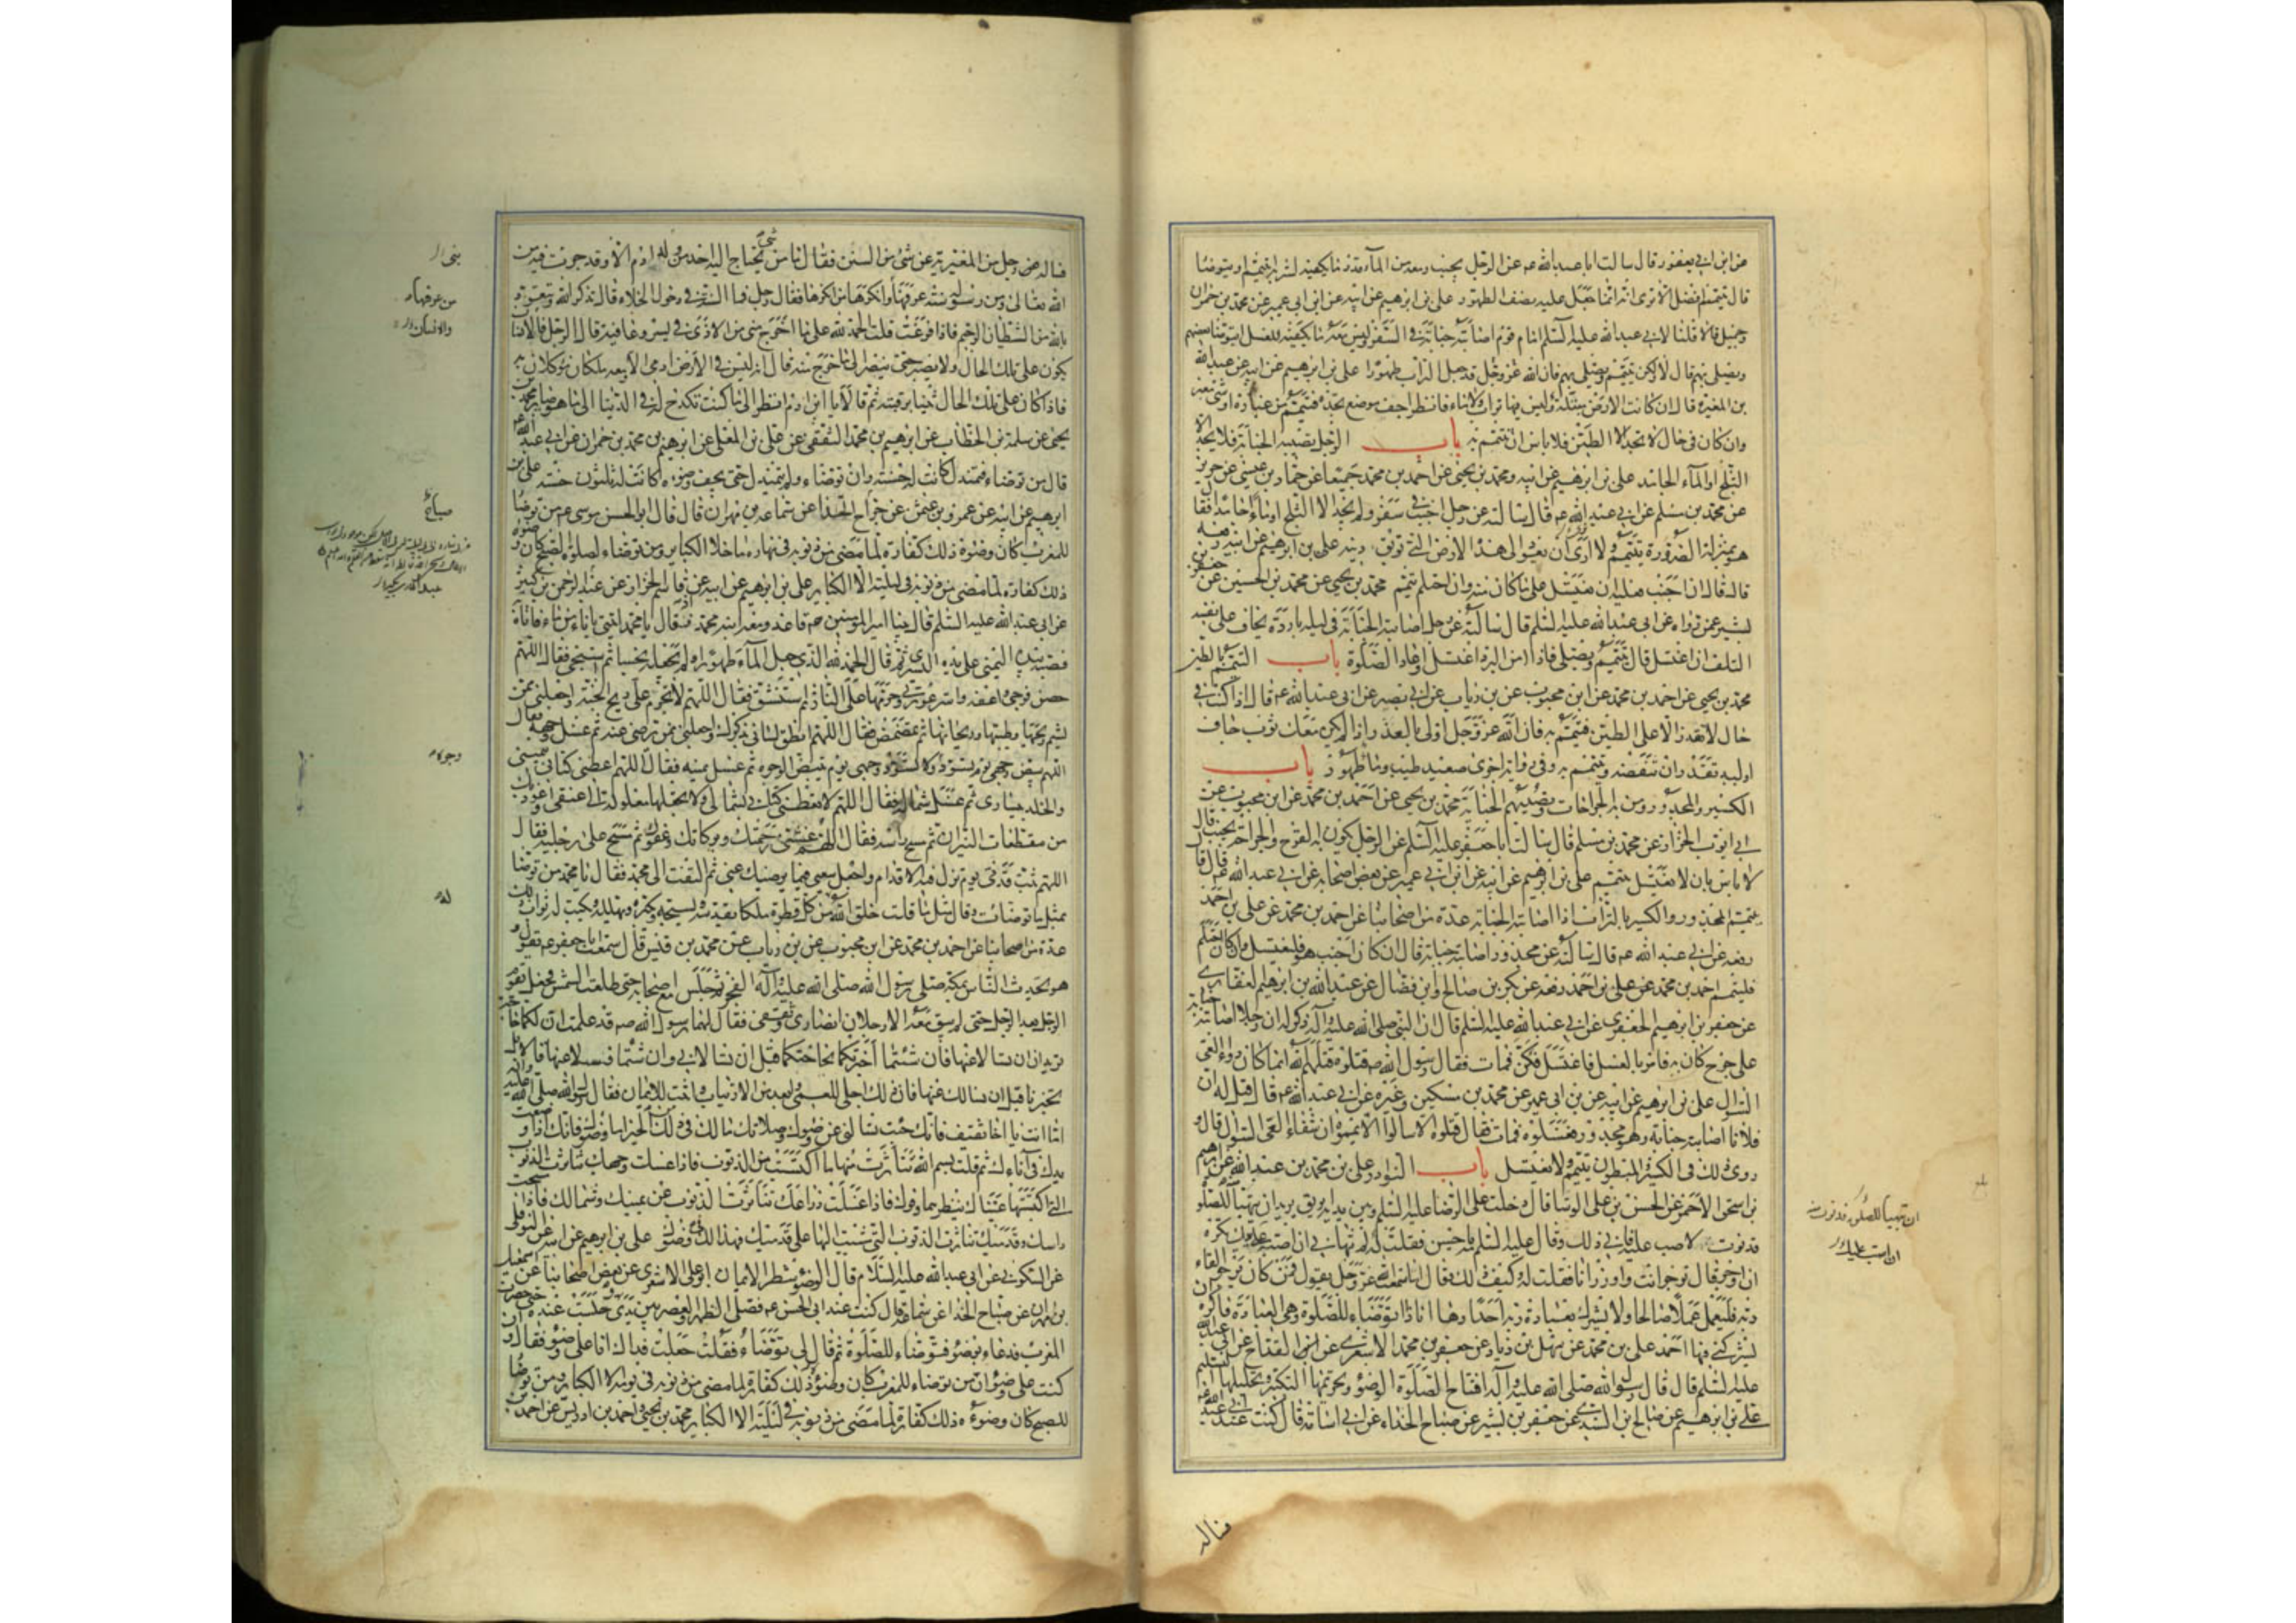 عن ابن ابي يعفور قال سالت ابا عبد الله عه عن الرجل يجنب ومعه من المآء قدر ما يكفيه لشربه ايتيمم او يتوضا
قال يتيمم افضل الا ترى انه انما جعل عليه نصف الطهور علي بن ابرهيم عن ابيه عن ابن ابي عمير عن محمد بن حمران
وجميل قالا قلنا لابي عبد الله عليه السلم امام قوم اصابته جنابة في السفر وليس معه ما يكفيه للغسل ايتوضا بعضهم
ويصلي بهم قال لا ولكن يتيمم ويصلي بهم فان الله عز وجل قد جعل التراب طهورا علي بن ابرهيم عن ابيه عن عبد الله
بن المغيرة قال ان كانت الارض مبتلة وليس فيها تراب ولا ماء فانظر اجف موضع تجده فتيمم من غباره او شئ مغبر
وان كان في حال لا تجد الا الطين فلا باس ان تتيمم به باب الرجل يصيبه الجنابة فلا يجد الا
الثلج او المآء الجامد علي بن ابرهيم عن ابيه ومحمد بن يحيى عن احمد بن محمد جميعا عن حماد بن عيسى عن حريز
عن محمد بن مسلم عن ابي عبد الله عه قال سالته عن رجل اجنب في سفر ولم يجد الا الثلج او ماء جامدا فقا
هو بمنزلة الضرورة يتيمم ولا ارى ان يعود الى هذه الارض التي توبق دينه علي بن ابرهيم عن ابيه رفعه
قال قال ان اجنب فعليه ان يغتسل على ما كان منه وان احتلم تيمم محمد بن يحيى عن محمد بن الحسين عن جعفر بن
بشير عمن رواه عن ابي عبد الله عليه السلم قال سالته عن رجل اصابته الجنابة في ليلة باردة يخاف على نفسه
التلف ان اغتسل قال يتيمم ويصلي فاذا امن البرد اغتسل واعاد الصلوة باب التيمم بالطين
محمد بن يحيى عن احمد بن محمد عن ابن محبوب عن بن رياب عن ابي بصير عن ابي عبد الله عه قال اذا كنت في
حال لا تقدر الا على الطين فتيمم به فان الله عز وجل اولى بالعذر اذا لم يكن معك ثوب جاف
او لبد تقدر ان تنفضه وتتيمم به وفي رواية اخرى صعيد طيب وماء طهور باب
الكسير والمجدور ومن به الجراحات وتصيبهم الجنابة محمد بن يحيى عن احمد بن محمد عن ابن محبوب عن
ابي ايوب الخزاز عن محمد بن مسلم قال سالت ابا جعفر عليه السلم عن الرجل يكون به القروح والجراحة يجنب قال
لا باس بان لا يغتسل يتيمم علي بن ابرهيم عن ابيه عن ابن ابي عمير عن بعض اصحابه عن ابي عبد الله عه قال
يتيمم المجدور والكسير بالتراب اذا اصابته الجنابة عدة من اصحابنا عن احمد بن محمد عن علي بن احمد
رفعه عن ابي عبد الله عه قال سالته عن مجدور اصابته جنابة قال ان كان اجنب هو فليغتسل وان كان احتلم
فليتيمم احمد بن محمد عن علي بن احمد رفعه عن بكر بن صالح وابن فضال عن عبد الله بن ابرهيم الغفاري
عن جعفر بن ابرهيم الجعفري عن ابي عبد الله عليه السلم قال ان النبي صلى الله عليه وآله ذكر له ان رجلا اصابته جنابة
على جرح كان به فامر بالغسل فاغتسل فكز فمات فقال رسول الله صه قتلوه قتلهم الله انما كان دواء العي
السؤال علي بن ابرهيم عن ابيه عن بن ابي عمير عن محمد بن سكين وغيره عن ابي عبد الله عه قال قيل له ان
فلانا اصابته جنابة وهو مجدور فغسلوه فمات فقال قتلوه الا سالوا الا يمموه ان شفاء العي السؤال قال و
روي ذلك في الكسير المبطون يتيمم ولا يغتسل باب النوادر علي بن محمد بن عبد الله عن ابرهيم
بن اسحق الاحمر عن الحسن بن علي الوشا قال دخلت على الرضا عليه السلم وبين يديه ابريق يريد ان يتهيأ للصلوة
فدنوت لاصب عليه فابى ذلك وقال عليه السلم مه يا حسن فقلت له لم تنهاني ان اصب عليك تكره
ان اوجر قال توجر انت واوزر انا فقلت له وكيف ذلك فقال اما سمعت الله عز وجل يقول فمن كان يرجو لقاء
ربه فليعمل عملا صالحا ولا يشرك بعبادة ربه احدا وها انا ذا اتوضاء للصلوة وهي العبادة فاكره ان
يشركني فيها احد علي بن محمد عن سهل بن زياد عن جعفر بن محمد الاشعري عن ابن القداح عن ابي عبد الله
عليه السلم قال قال رسول الله صلى الله عليه وآله افتتاح الصلوة الوضوء وتحريمها التكبير وتحليلها التسليم
علي بن ابرهيم عن صالح بن السندي عن جعفر بن بشير عن صباح الحذاء عن ابي اسامة قال كنت عند ابي عبد الله عه
ان يتهيأ للصلوة فدنوت منه
ان اصب عليك
فساله
فساله رجل من المغيرية عن شئ من السنن فقال ما من شئ يحتاج اليه احد من ولد ادم الا وقد جرت فيه من
الله تعالى ومن رسوله سنة عرفها من عرفها وانكرها من انكرها فقال رجل فما السنة في دخول الخلاء قال تذكر الله وتتعوذ
بالله من الشيطان الرجيم فاذا فرغت قلت الحمد لله على ما اخرج مني من الاذى في يسر وعافية قال الرجل فالانسان
يكون على تلك الحال ولا يصبر حتى ينظر الى ما خرج منه قال انه ليس في الارض ادمي الا ومعه ملكان موكلان به
فاذا كان على تلك الحال ثنيا برقبته ثم قالا يا ابن ادم انظر الى ما كنت تكدح له في الدنيا الى ما هو صاير محمد بن
يحيى عن سلمة بن الخطاب عن ابرهيم بن محمد الثقفي عن علي بن المعلى عن ابرهيم بن محمد بن حمران عن ابي عبد الله عه
قال من توضاء فتمندل كانت له حسنة وان توضاء ولم يتمندل حتى يجف وضوءه كانت له ثلثون حسنة علي بن
ابرهيم عن ابيه عن عمرو بن عثمن عن جراح الحذا عن سماعة بن مهران قال قال ابو الحسن موسى عه من توضا
للمغرب كان وضوءه ذلك كفارة لما مضى من ذنوبه في نهاره ما خلا الكباير ومن توضاء لصلوة الصبح كان وضوءه
ذلك كفارة لما مضى من ذنوبه في ليلته الا الكباير علي بن ابرهيم عن ابيه عن قاسم الخزاز عن عبد الرحمن بن كثير
عن ابي عبد الله عليه السلم قال بينا امير المومنين عه قاعد ومعه ابنه محمد اذ قال يا محمد ايتني باناء من ماء فاتاه
فصبه بيده اليمنى على يده اليسرى ثم قال الحمد لله الذي جعل المآء طهورا ولم يجعله نجسا ثم استنجى فقال اللهم
حصن فرجي واعفه واستر عورتي وحرمها على النار ثم استنشق فقال اللهم لا تحرم علي ريح الجنة واجعلني ممن
يشم ريحها وطيبها وريحانها ثم تمضمض فقال اللهم انطق لساني بذكرك واجعلني ممن ترضى عنه ثم غسل وجهه فقال
اللهم بيض وجهي يوم تسود فيه الوجوه ولا تسود وجهي يوم تبيض الوجوه ثم غسل يمينه فقال اللهم اعطني كتابي بيميني
والخلد بيساري ثم غسل شماله فقال اللهم لا تعطني كتابي بشمالي ولا تجعلها مغلولة الى عنقي واعوذ بك
من مقطعات النيران ثم مسح راسه فقال اللهم غشني برحمتك وبركاتك وعفوك ثم مسح على رجليه فقال
اللهم ثبت قدمي يوم تزل فيه الاقدام واجعل سعيي فيما يرضيك عني ثم التفت الى محمد فقال يا محمد من توضا
بمثل ما توضات وقال مثل ما قلت خلق الله من كل قطرة ملكا يقدسه ويسبحه ويكبره ويهلله ويكتب له ثواب ذلك
عدة من اصحابنا عن احمد بن محمد عن ابن محبوب عن بن رياب عن محمد بن قيس قال سمعت ابا جعفر عه يقول و
هو يحدث الناس بمكة صلى رسول الله صلى الله عليه وآله الفجر ثم جلس مع اصحابه حتى طلعت الشمس فجعل يقوم
الرجل بعد الرجل حتى لم يبق معه الا رجلان انصاري وثقفي فقال لهما رسول الله صه قد علمت ان لكما حاجة
تريدان ان تسالا عنها فان شئتما اخبرتكما بحاجتكما قبل ان تسالاني وان شئتما فسلا عنها قالا بل
تخبرنا قبل ان نسالك عنها فان ذلك اجلى للعمى وابعد من الارتياب واثبت للايمان فقال رسول الله صلى الله عليه وآله
اما انت يا اخا ثقيف فانك جئت تسالني عن وضوئك وصلاتك ما لك في ذلك من الخير اما وضوئك فانك اذا وضعت
يدك في اناءك ثم قلت بسم الله تناثرت منها ما اكتسبت من الذنوب فاذا غسلت وجهك تناثرت الذنوب
التي اكتسبتها عيناك بنظرهما وفوك فاذا غسلت ذراعك تناثرت الذنوب عن يمينك وشمالك فاذا مسحت
راسك وقدميك تناثرت الذنوب التي مشيت اليها على قدميك فهذا لك في وضوئك علي بن ابرهيم عن ابيه عن النوفلي
عن السكوني عن ابي عبد الله عليه السلام قال الوضوء شطر الايمان ابو علي الاشعري عن بعض اصحابنا عن اسمعيل
بن مهران عن صباح الحذا عن سماعة قال كنت عند ابي الحسن عه فصلى الظهر والعصر بين يدي وجلست عنده حتى حضرت
المغرب فدعا بوضوء فتوضاء للصلوة ثم قال لي توضاء فقلت جعلت فداك انا على وضوء فقال و ان
كنت على وضوء ان من توضاء للمغرب كان وضوءه ذلك كفارة لما مضى من ذنوبه في يومه الا الكباير ومن توضا
للصبح كان وضوءه ذلك كفارة لما مضى من ذنوبه في ليلته الا الكباير محمد بن يحيى واحمد بن ادريس عن احمد بن
من عرفها
والانسان
صباح
وجوه
له